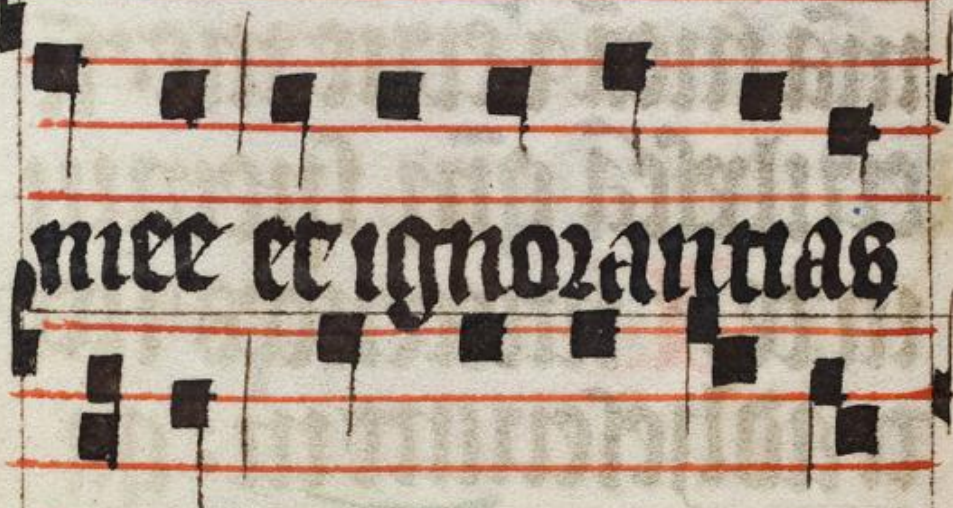 mee et ignorantias